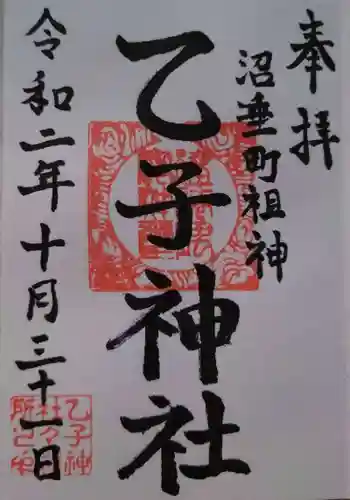 奉拝
沼垂町祖神
乙子神社
令和二年十月三十一日
乙子神
社々務
所之印